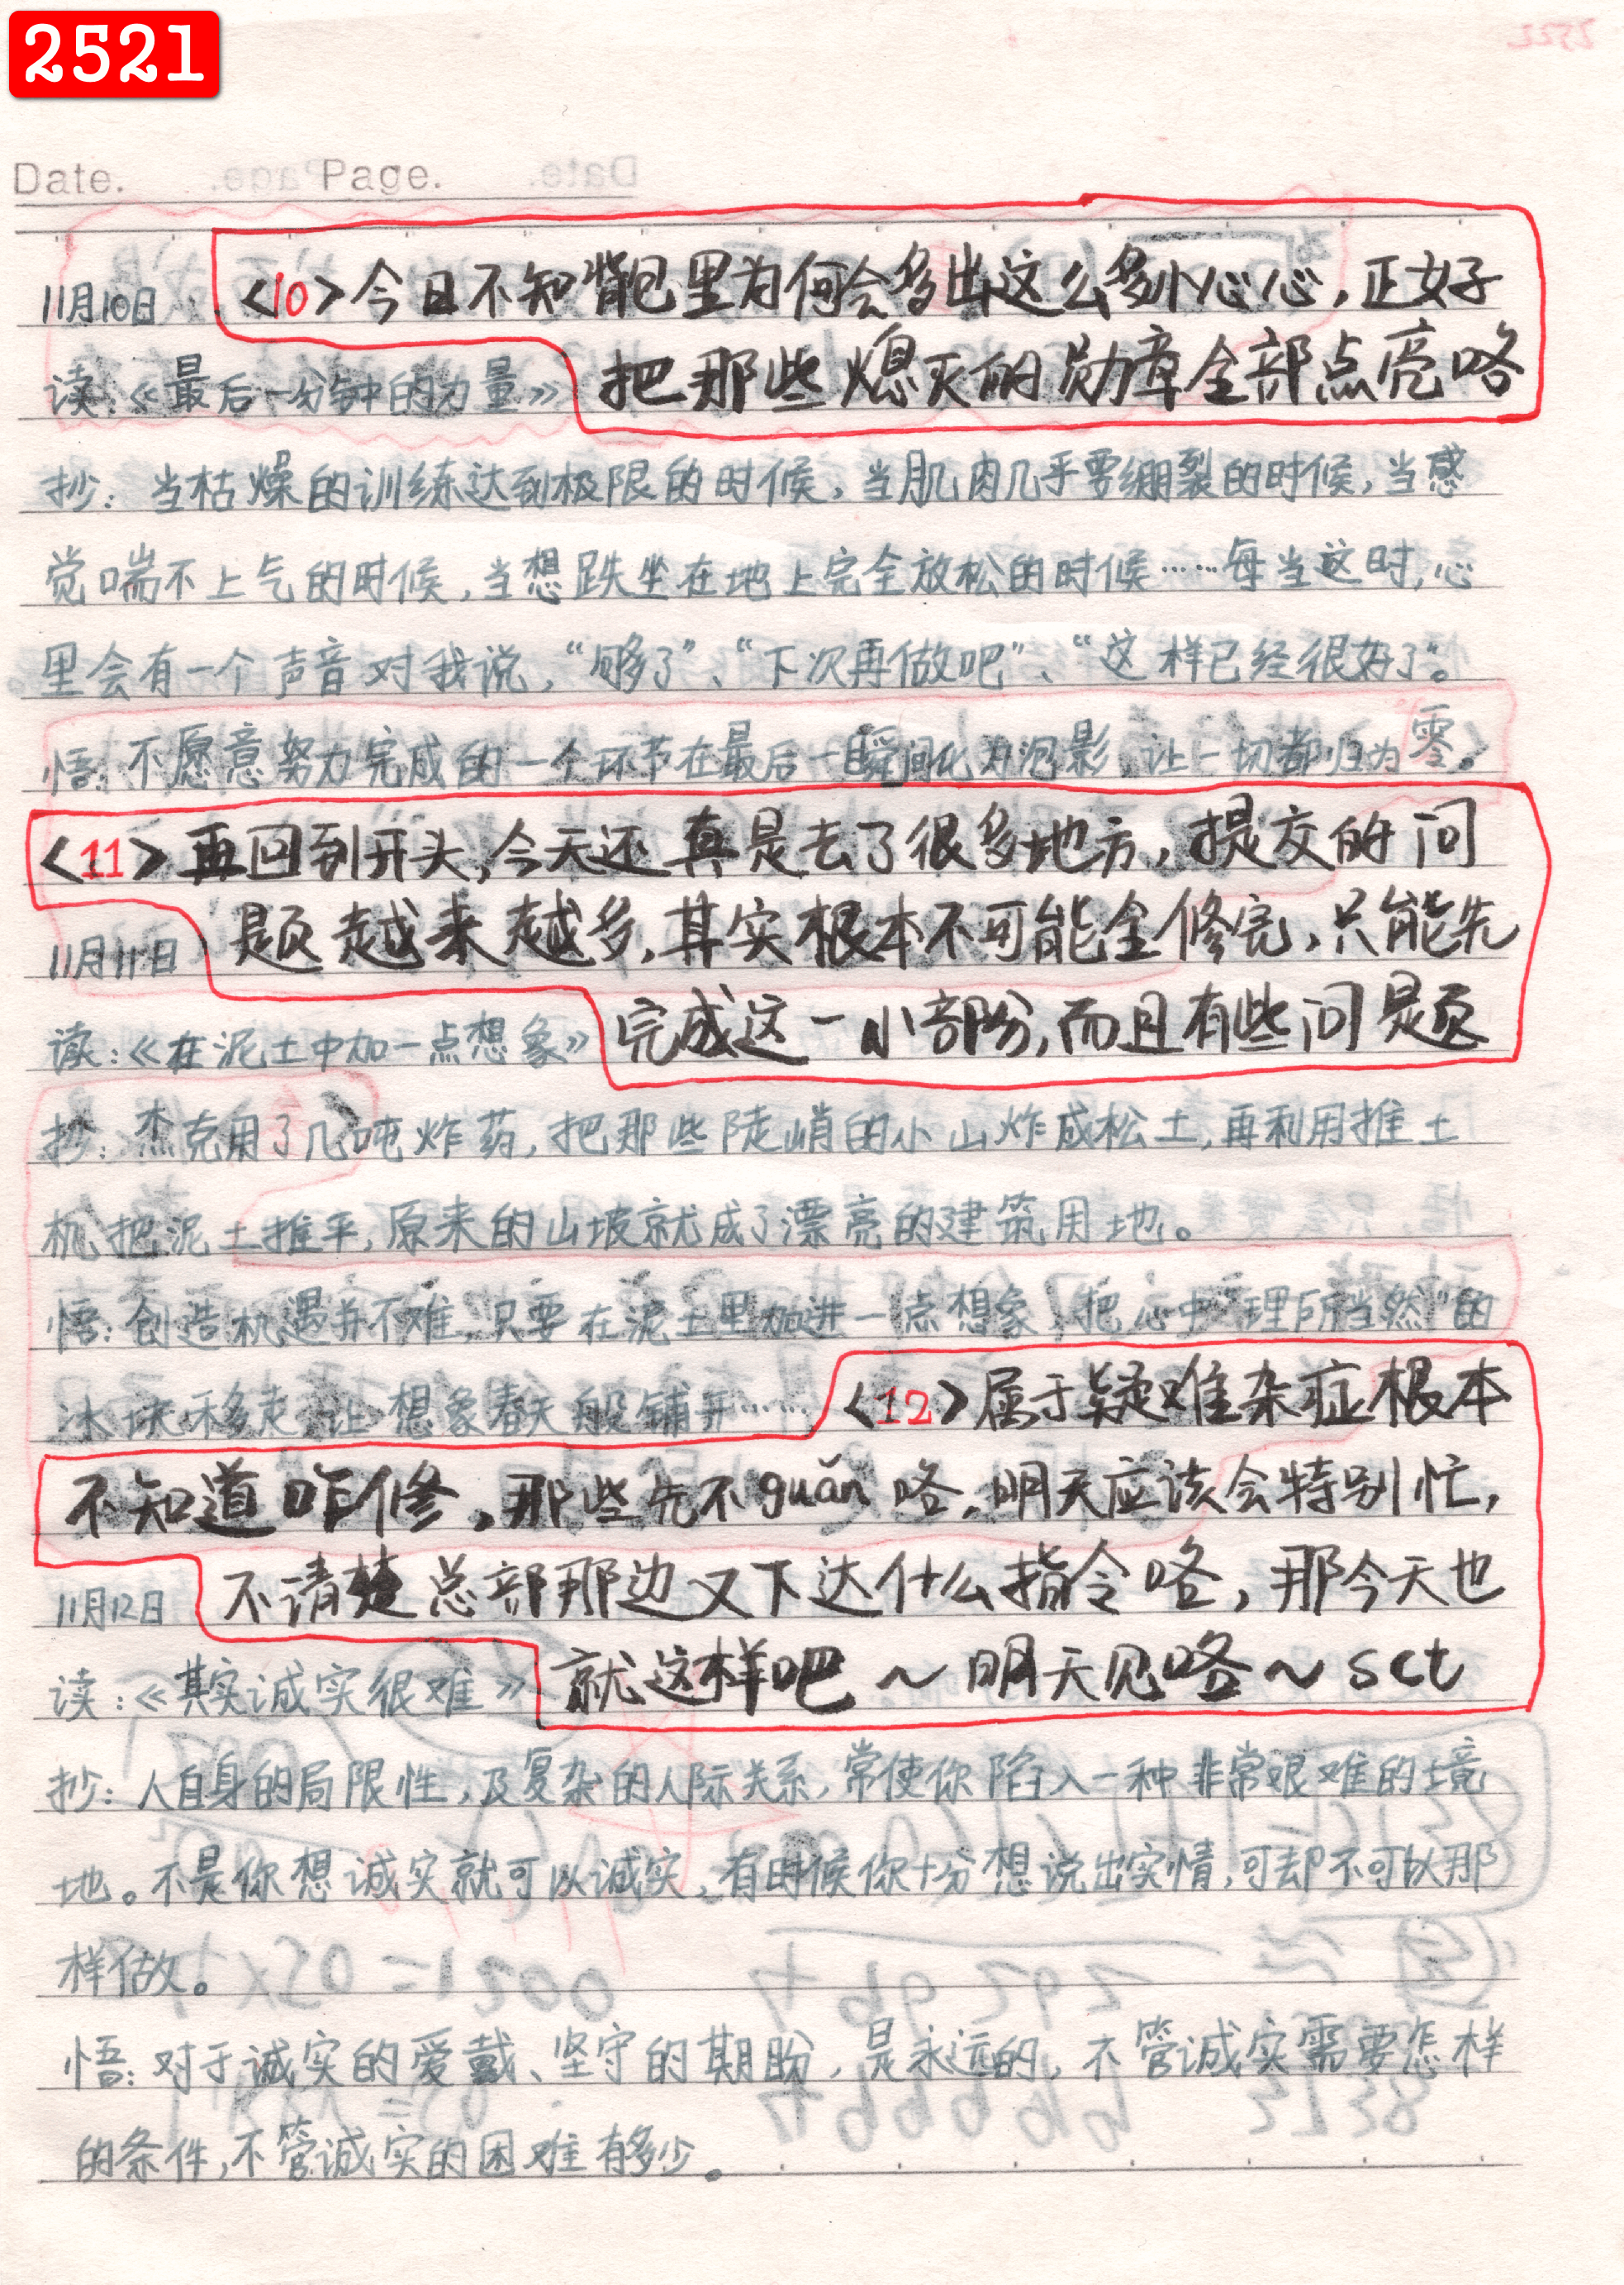 2521
Date. Page.
11月10日 <10>今日不知背包里为何会多出这么多小心心,正好
读:《最后一分钟的力量》 把那些熄灭的勋章全部点亮咯
抄:当枯燥的训练达到极限的时候,当肌肉几乎要绷裂的时候,当感
觉喘不上气的时候,当想跌坐在地上完全放松的时候……每当这时,心
里会有一个声音对我说,“够了”、“下次再做吧”、“这样已经很好了”。
悟:不愿意努力完成的一个环节在最后一瞬间化为泡影,让一切都归为零。
<11>再回到开头,今天还真是去了很多地方,提交的问
11月11日 题越来越多,其实根本不可能全修完,只能先
读:《在泥土中加一点想象》 完成这一小部份,而且有些问题
抄:杰克用了几吨炸药,把那些陡峭的小山炸成松土,再利用推土
机把泥土推平,原来的山坡就成了漂亮的建筑用地。
悟:创造机遇并不难,只要在泥土里加进一点想象,把心中“理所当然”的
冰块移走,让想象春天般铺开…… <12>属于疑难杂症根本
不知道咋修,那些先不guǎn咯,明天应该会特别忙,
11月12日 不请楚总部那边又下达什么指令咯,那今天也
读:《其实诚实很难》 就这样吧~明天见咯~sct
抄:人自身的局限性,及复杂的人际关系,常使你陷入一种非常艰难的境
地。不是你想诚实就可以诚实,有时候你十分想说出实情,可却不可以那
样做。
悟:对于诚实的爱戴、坚守的期盼,是永远的,不管诚实需要怎样
的条件,不管诚实的困难有多少。